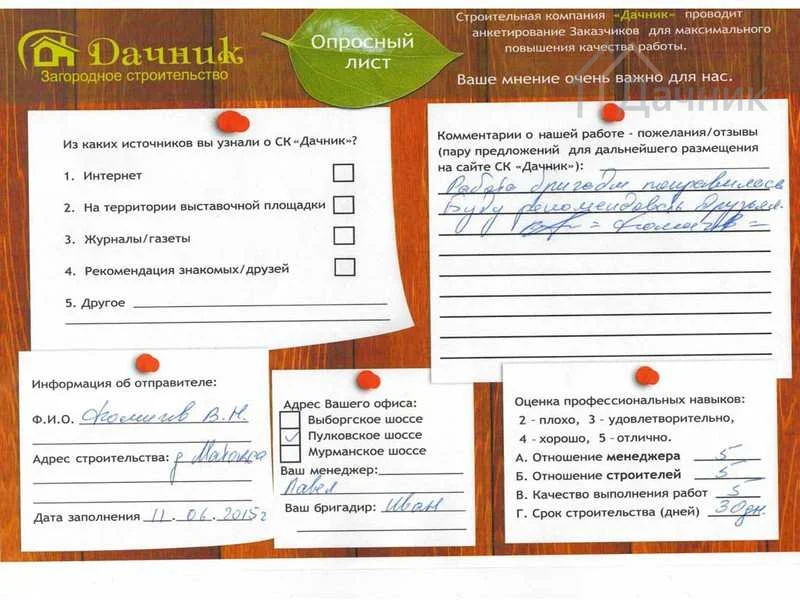 Дачник
Загородное строительство
Опросный
лист
Строительная компания «Дачник» проводит
анкетирование Заказчиков для максимального
повышения качества работы.
Ваше мнение очень важно для нас.
Дачник
Из каких источников вы узнали о СК «Дачник»?
1. Интернет
2. На территории выставочной площадки
3. Журналы/газеты
4. Рекомендация знакомых/друзей
5. Другое
Комментарии о нашей работе - пожелания/отзывы
(пару предложений для дальнейшего размещения
на сайте СК «Дачник»):
Работа бригады понравилась
Буду рекомендовать друзьям
Информация об отправителе:
Ф.И.О. Фомичев В.Н.
Адрес строительства: д
Дата заполнения 11.06.2015г
Адрес Вашего офиса:
Выборгское шоссе
Пулковское шоссе
Мурманское шоссе
Ваш менеджер:
Павел
Ваш бригадир: Иван
Оценка профессиональных навыков:
2 - плохо, 3 - удовлетворительно,
4 - хорошо, 5 - отлично.
А. Отношение менеджера 5
Б. Отношение строителей 5
В. Качество выполнения работ 5
Г. Срок строительства (дней) 30дн.